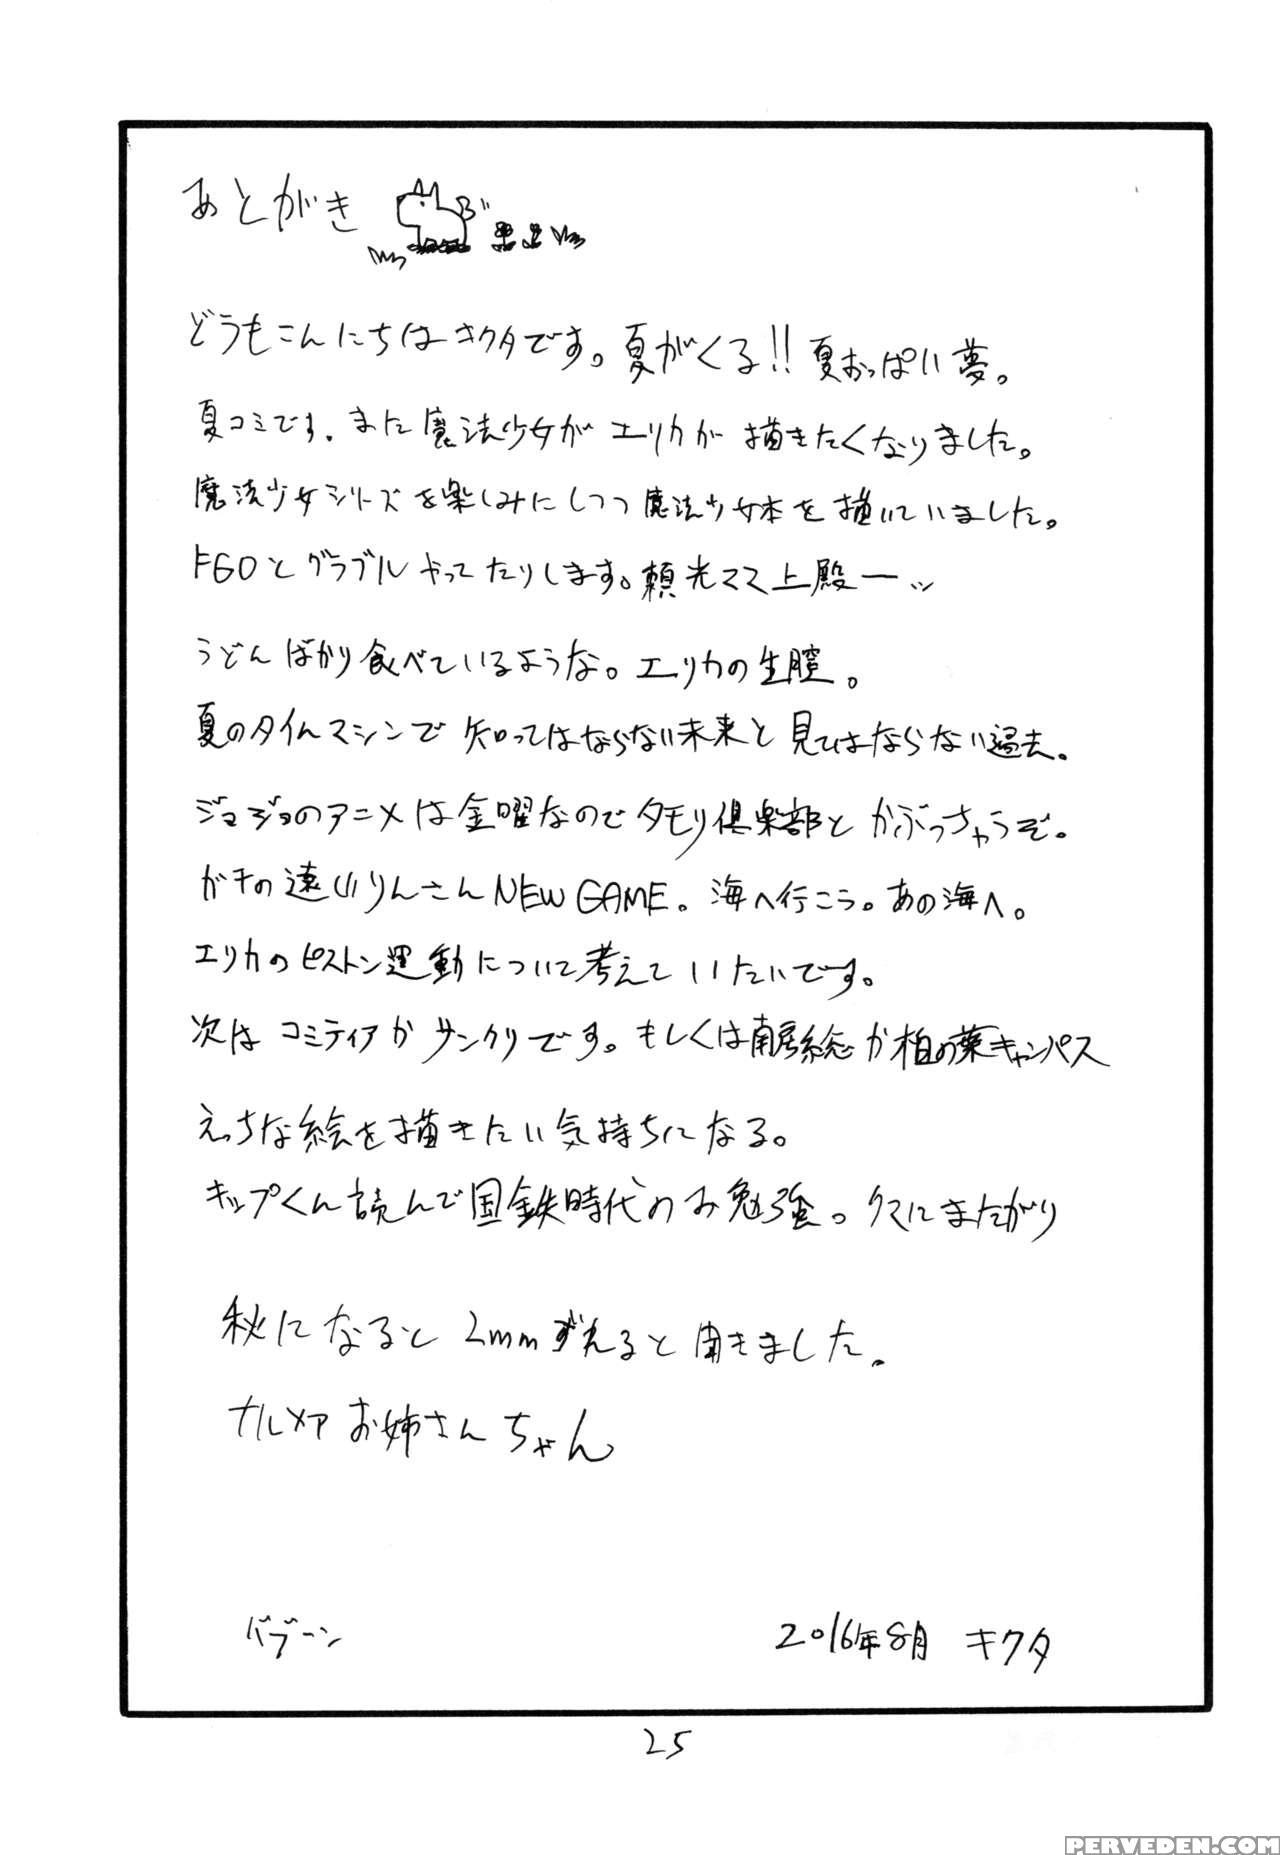 あとがき
どうもこんにちはキクタです。夏がくる!!夏おっぱい夢。
夏コミです。また魔法少女がエリカが描きたくなりました。
魔法少女シリーズを楽しみにしつつ魔法少女本を描いていました。
FGOとグラブルやってたりします。頼光ママ上殿ーッ
うどんばかり食べているような。エリカの生膣。
夏のタイムマシンで知ってはならない未来と見てはならない過去。
ジョジョのアニメは金曜なのでタモリ倶楽部とかぶっちゃうぞ。
ガチの遠山りんさんNEW GAME。海へ行こう。あの海へ。
エリカのピストン運動について考えていたいです。
次はコミティアかサンクリです。もしくは南房総か柏の葉キャンパス
えっちな絵を描きたい気持ちになる。
キップくん読んで国鉄時代のお勉強。クマにまたがり
秋になると2mmずれると聞きました。
ナルメアお姉さんちゃん
バブーン
2016年8月 キクタ
25
PERVEDEN.COM